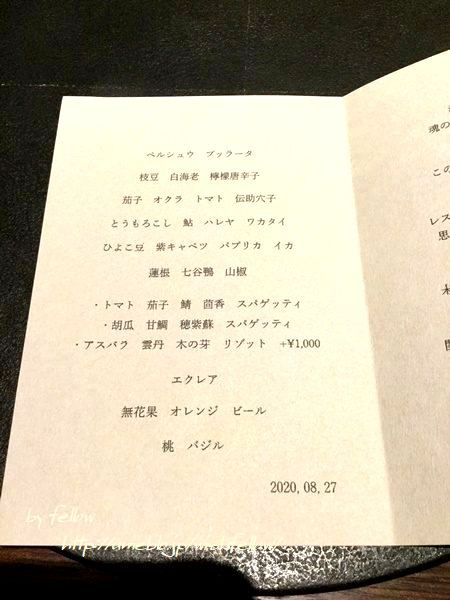 ペルシュウ ブッラータ
枝豆 白海老 檸檬唐辛子
茄子 オクラ トマト 伝助穴子
とうもろこし 鮎 ハレヤ ワカタイ
ひよこ豆 紫キャベツ パプリカ イカ
蓮根 七谷鴨 山椒
・トマト 茄子 鯖 茴香 スパゲッティ
・胡瓜 甘鯛 穂紫蘇 スパゲッティ
・アスパラ 雲丹 木の芽 リゾット +¥1,000
エクレア
無花果 オレンジ ビール
桃 バジル
2020,08,27
魂の
この
レス
思
by fellow